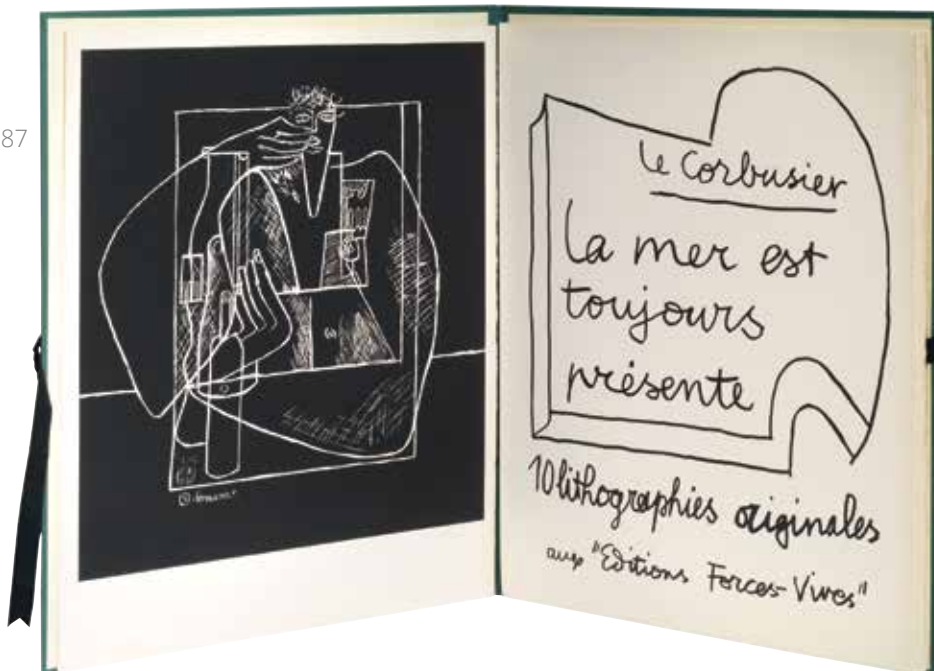 87
Le Corbusier
la mer est
toujours
présente
10 lithographies originales
aux "Editions Forces-Vives"